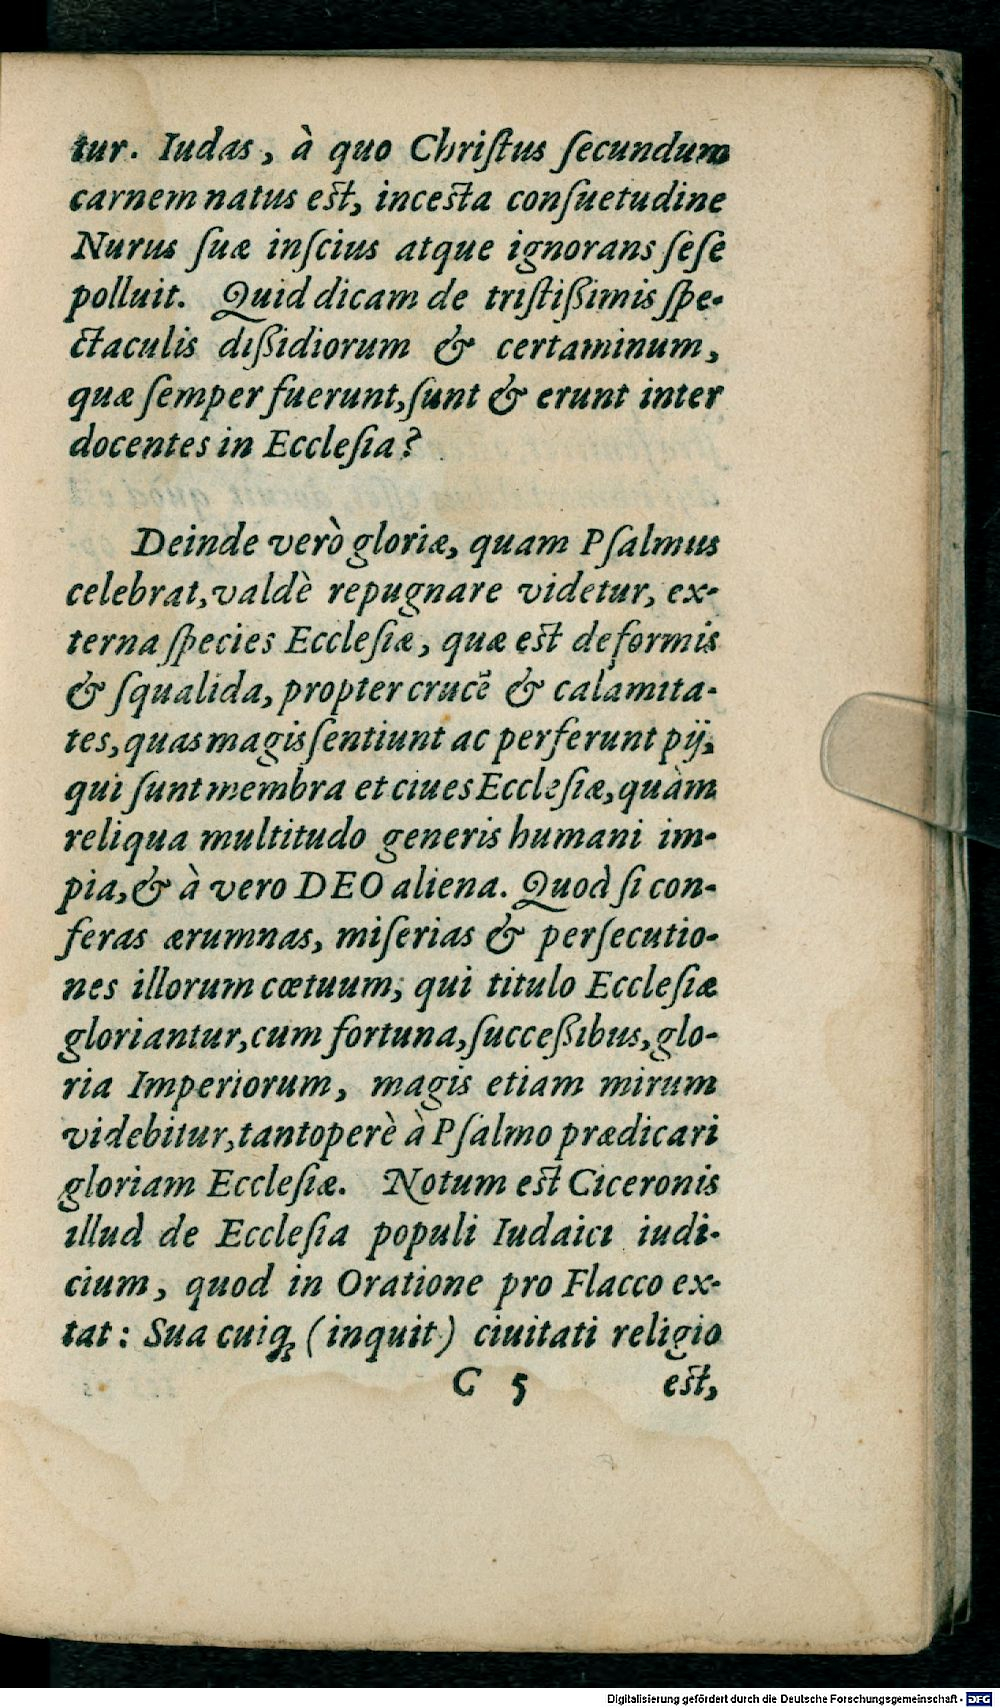 tur. Iudas, à quo Chriſtus ſecundum
carnem natus eſt, inceſta conſuetudine
Nurus ſuæ inſcius atque ignorans ſeſe
polluit. Quid dicam de triſtißimis ſpe-
ctaculis dißidiorum & certaminum,
quæ ſemper fuerunt, ſunt & erunt inter
docentes in Eccleſia?
Deinde verò gloriæ, quam Pſalmus
celebrat, valdè repugnare videtur, ex-
terna ſpecies Eccleſiæ, quæ eſt deformis
& ſqualida, propter crucẽ & calamita-
tes, quas magis ſentiunt ac perferunt pij,
qui ſunt membra et ciues Eccleſiæ, quàm
reliqua multitudo generis humani im-
pia, & à vero DEO aliena. Quòd ſi con-
feras ærumnas, miſerias & perſecutio-
nes illorum cœtuum, qui titulo Eccleſiæ
gloriantur, cum fortuna, ſucceßibus, glo-
ria Imperiorum, magis etiam mirum
videbitur, tantoperè à Pſalmo prædicari
gloriam Eccleſiæ. Notum eſt Ciceronis
illud de Eccleſia populi Iudaici iudi-
cium, quod in Oratione pro Flacco ex-
tat: Sua cuiq; (inquit) ciuitati religio
C 5 eſt,
Digitalisierung gefördert durch die Deutsche Forschungsgemeinschaft - DFG